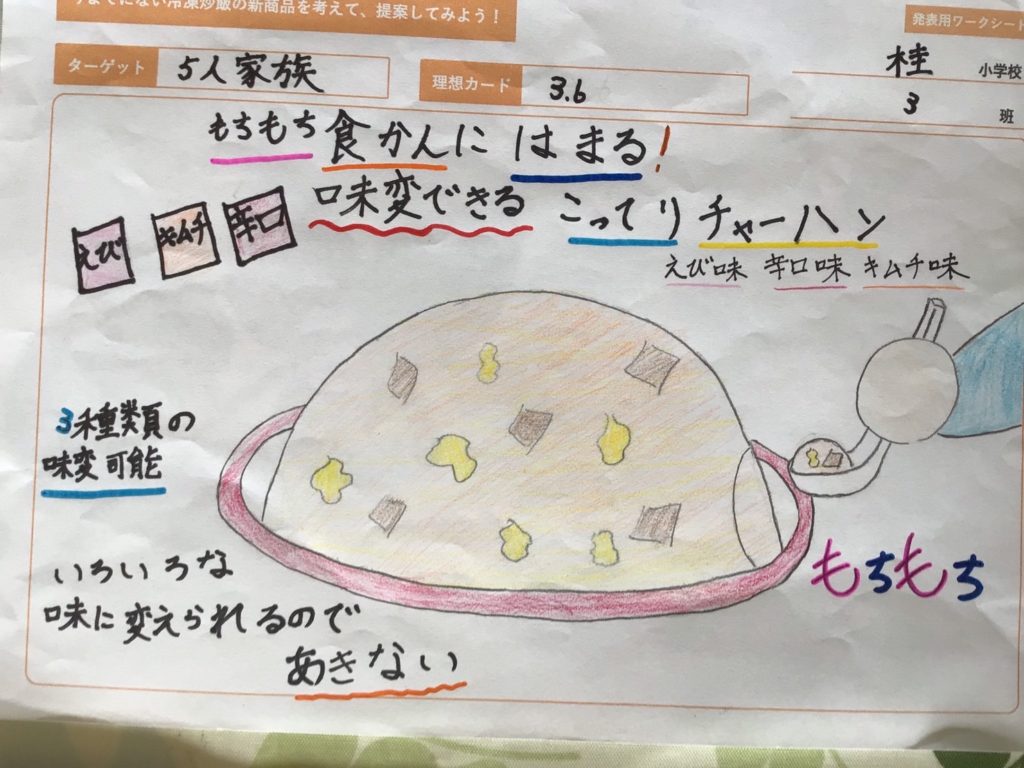 今までにない冷凍炒飯の新商品を考えて、提案してみよう！
発表用ワークシート
ターゲット 5人家族
理想カード 3.6
桂 小学校
3 班
もちもち食かんにはまる!
味変できる こってりチャーハン
えび キムチ 辛口
えび味 辛口味 キムチ味
3種類の
味変可能
もちもち
いろいろな
味に変えられるので
あきない